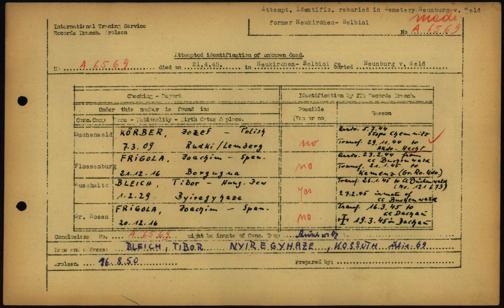 Attempt. Identific. reburied in Cemetery Neunburg v. Wald
former Neukirchen- Balbini
made
No A 6569
International Tracing Service
Records Branch, Arolsen
Attempted identification of unknown dead.
No. A 6569 died on 21.4.45. in Neukirchen- Balbini buried Neunburg v. Wald
Checking - Report
Identification by ITS Records Branch.
Under this number is found in:
Possible
(Yes or no)
Reason
Conc.Camp Name - Nationality - Birth Dates & place.
Buchenwald KÖRBER, Josef - Polish
7.3.09 Rudki/Lemberg
no
Transf. 29.11.44 to
Flossenburg FRIGOLA, Joachim - Span.
20.12.16
no
23.2.44 from
cc Buchenwald
Transf. 21.1.45 to
Kamenz (Gr. Ro.)
Auschwitz BLEICH, Tibor - Hung. Jew
1.2.29 Nyiregyhaza
Yes
Transf. 26.1.45 to cc Buchenwald
inmate of
cc Buchenwald
Gr. Rosen FRIGOLA, Joachim - Span.
20.12.16
no
Transf. 16.3.45 to
cc Dachau
19.3.45 in Dachau
Conclusion: No. A 6569 might be inmate of Conc. Camp Auschwitz
Name and Address: BLEICH, TIBOR NYIREGYHAZE, KOSSUTH 69
Arolsen, 16.8.50 Prepared by: